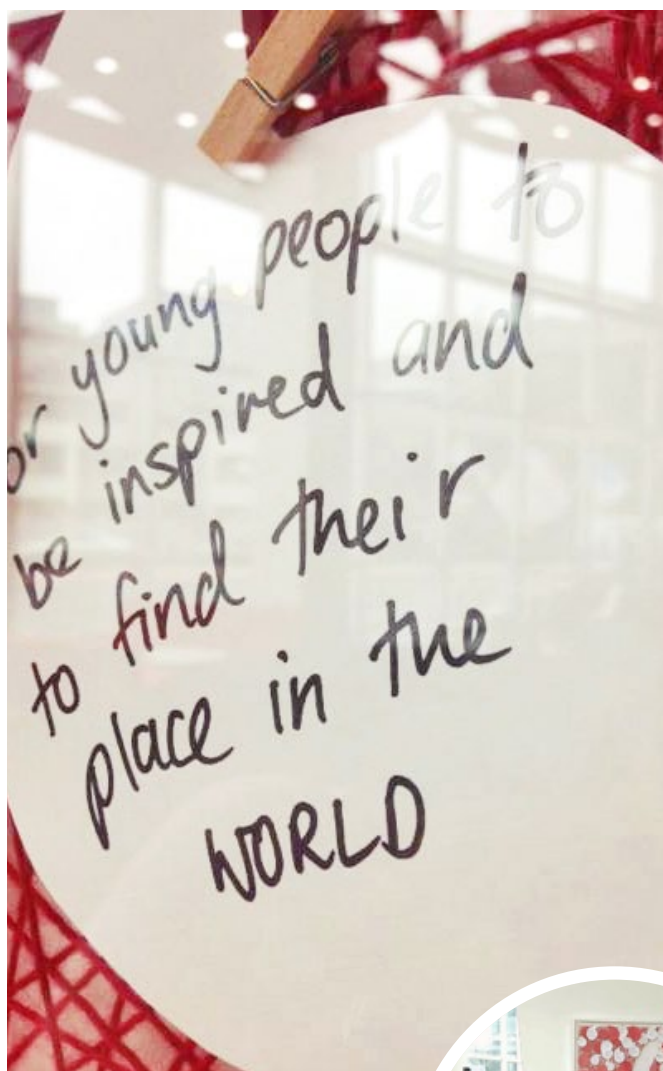 or young people to
be inspired and
to find their
place in the
WORLD